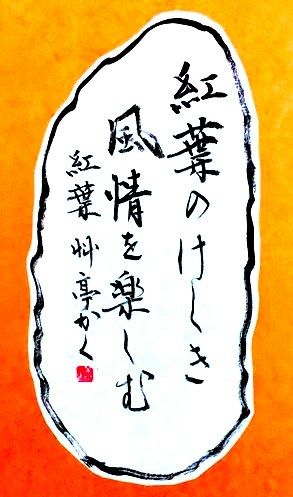 紅葉のけしき
風情を楽しむ
紅葉 艸亭かく